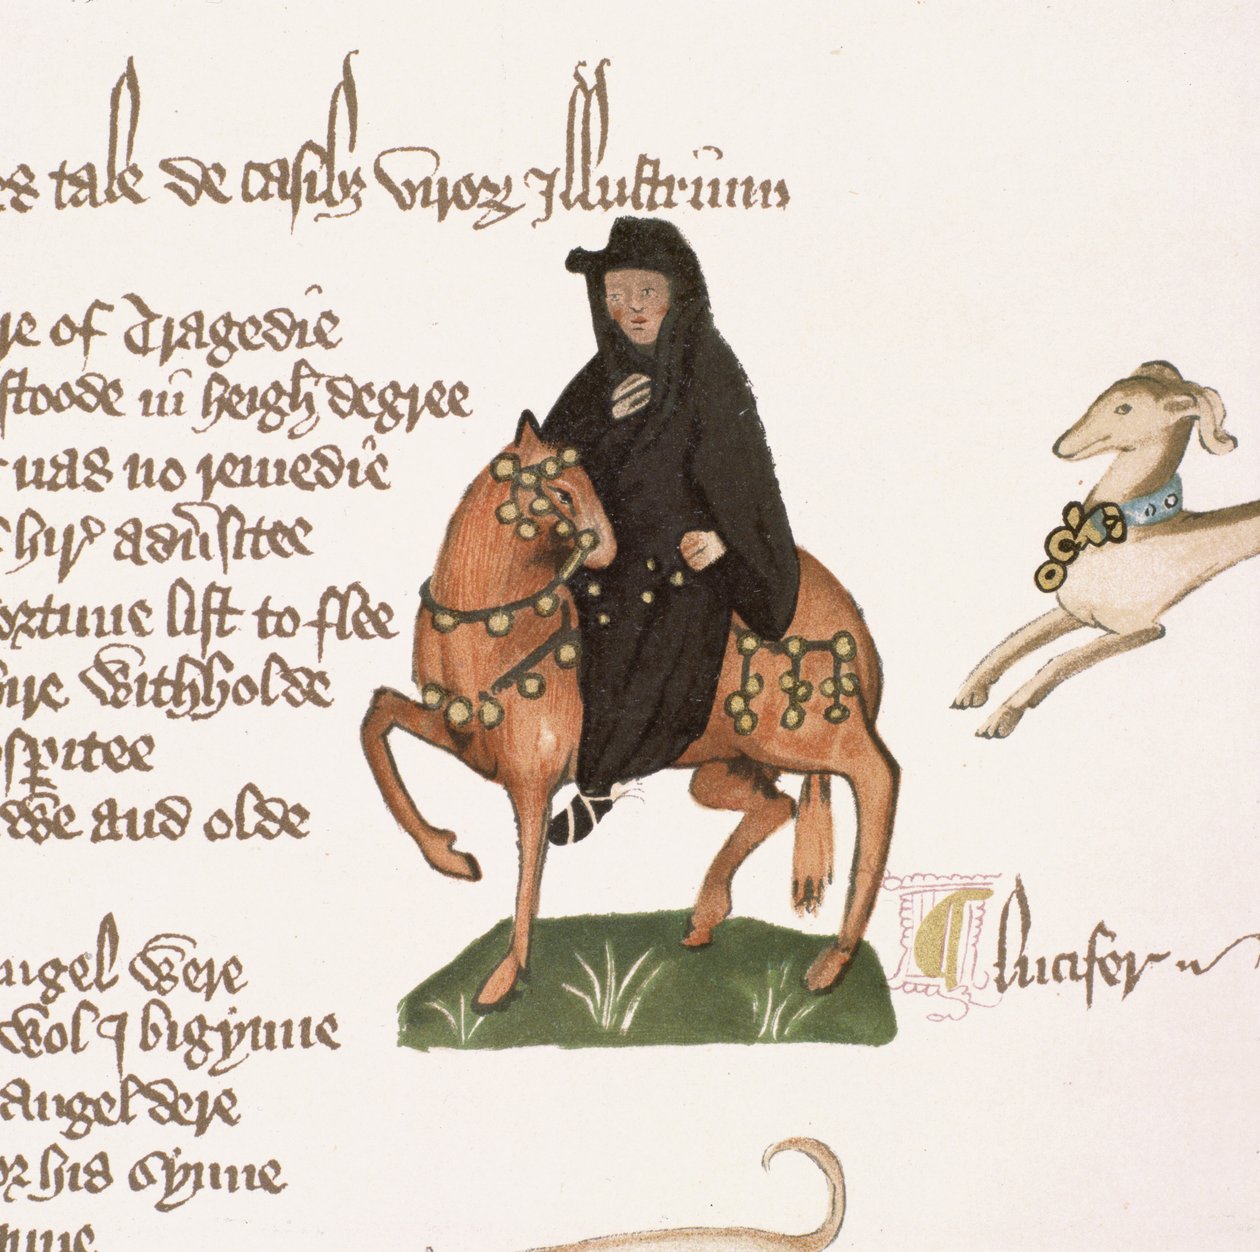 es tale de casibȝ viroꝝ Illustriu̅m
re of Tragedie
stoode in heigh degree
r nas no remedie
hir aduersitee
ortune list to flee
hire withholde
osꝑitee
ewe and olde
Angel were
wol I bigynne
angel dere
or his synne
Lucifer